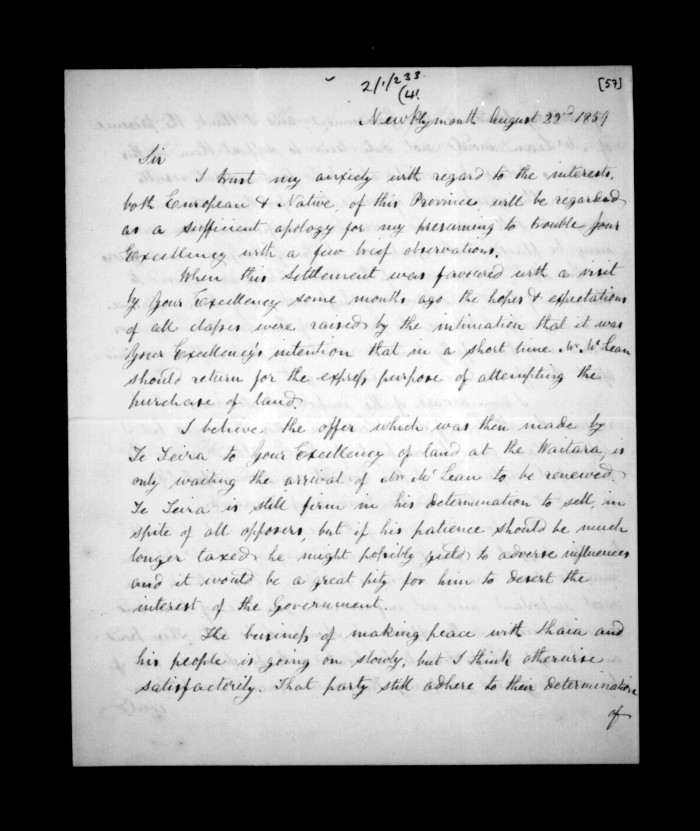 2/1/233.
(4)
[57]
New Plymouth August 22nd 1859
Sir
I trust my anxiety with regard to the interests,
both European & Native, of this Province will be regarded
as a sufficient apology for my presuming to trouble Your
Excellency with a few brief observations.
When this Settlement was favoured with a visit
by Your Excellency some months ago the hopes & expectations
of all classes were raised by the intimation that it was
Your Excellency's intention that in a short time Mr McLean
should return for the express purpose of attempting the
purchase of land.
I believe the offer which was then made by
Te Teira to Your Excellency of land at the Waitara, is
only waiting the arrival of Mr McLean to be renewed.
Te Teira is still firm in his determination to sell, in
spite of all opposers, but if his patience should be much
longer taxed he might possibly yield to adverse influences
and it would be a great pity for him to desert the
interest of the Government.
The business of making peace with Ihaia and
his people is going on slowly, but I think otherwise
satisfactorily. That party still adhere to their determination
of